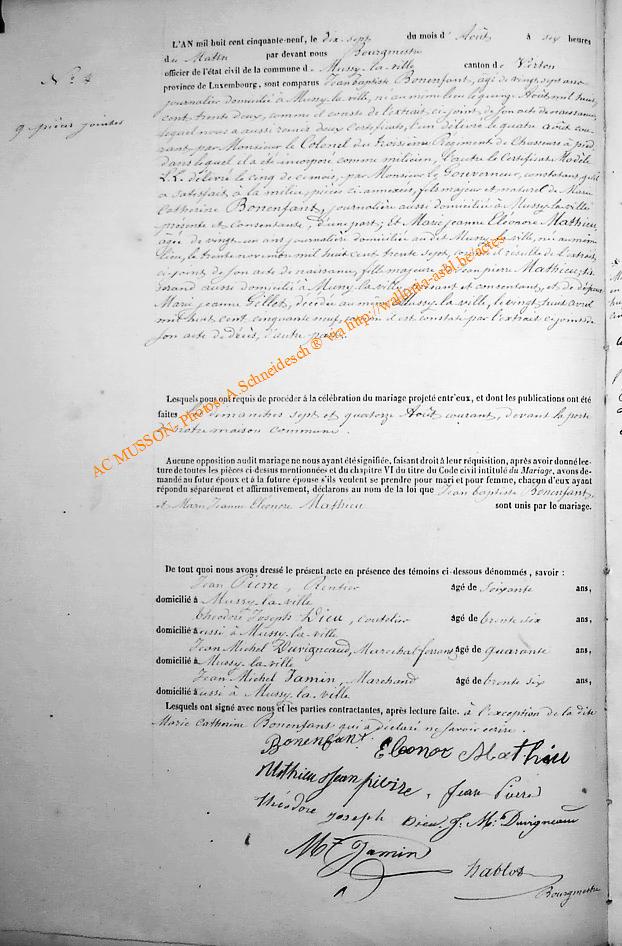 L'AN mil huit cent cinquante-neuf, le dix sept du mois d' Août à six heures
du Matin par devant nous Bourgmestre
officier de l'état civil de la commune de Mussy-la-ville canton de Virton
N.º 4
province de Luxembourg, sont comparus Jean Baptiste Bonenfant, agé de vingt sept ans
journalier domicilié à Mussy-la-ville, né au même lieu le quinze Août mil huit
9 pièces jointes
cent trente deux, comme il conste de l'extrait, ci-joint, de son acte de naissance,
lequel nous a aussi remis deux Certificats, l'un délivré le quatre août cou-
rant, par Monsieur le Colonel du troisième Régiment de Chasseurs à pied
dans lequel il a été incorporé comme milicien, l'autre le Certificat Modèle
L.L. délivré le cinq de ce mois, par Monsieur le Gouverneur, constatant qu'il
a satisfait à la milice, pièces ci-annexées, fils majeur et naturel de Marie
Catherine Bonenfant, journalière aussi domiciliée à Mussy-la-ville
présente et consentante, d'une part; Et Marie Jeanne Eléonore Mathieu,
agée de vingt un ans journalière domiciliée au dit Mussy-la-ville, née au même
lieu, le trente novembre mil huit cent trente sept, comme il résulte de l'extrait,
ci-joint, de son acte de naissance, fille majeure de Jean pierre Mathieu, tis-
serand aussi domicilié à Mussy-la-ville présent et consentant, et de défunte
Marie jeanne Gillet, décédée au même Mussy-la-ville, le vingt huit avril
mil huit cent cinquante neuf, comme il est constaté par l'extrait ci-joint de
son acte de décès, d'autre part.
Lesquels nous ont requis de procéder à la célébration du mariage projeté entr'eux, et dont les publications ont été
faites les dimanches sept et quatorze Août courant, devant la porte
de notre maison commune.
Aucune opposition audit mariage ne nous ayant été signifiée, faisant droit à leur réquisition, après avoir donné lec-
ture de toutes les pièces ci-dessus mentionnées et du chapitre VI du titre du Code civil intitulé du Mariage, avons de-
mandé au futur époux et à la future épouse s'ils veulent se prendre pour mari et pour femme, chacun d'eux ayant
répondu séparément et affirmativement, déclarons au nom de la loi que Jean baptiste Bonenfant
et Marie Jeanne Eléonore Mathieu sont unis par le mariage.
De tout quoi nous avons dressé le présent acte en présence des témoins ci-dessous dénommés, savoir :
Jean Pierre, Rentier âgé de Soixante ans,
domicilié à Mussy-la-ville
Théodore Joseph Dieu, coutelier âgé de trente six ans,
domicilié aussi à Mussy-la-ville
Jean Michel Duvigneaud, Marechal ferrant âgé de quarante ans,
domicilié à Mussy-la-ville
Jean Michel Jamin, Marchand âgé de trente six ans,
domicilié aussi à Mussy-la-ville
Lesquels ont signé avec nous et les parties contractantes, après lecture faite. à l'exception de la dite
Marie Catherine Bonenfant qui a déclaré ne savoir écrire.
Bonenfant Eleonor Mathieu
Mathieu Jean pierre, Jean Pierre
théodore joseph Dieu J. M. Duvigneaud
M Jamin
Bourgmestre
AC MUSSON- Photos: A.Schneidesch ® via http://wallonia-asbl.be/actes